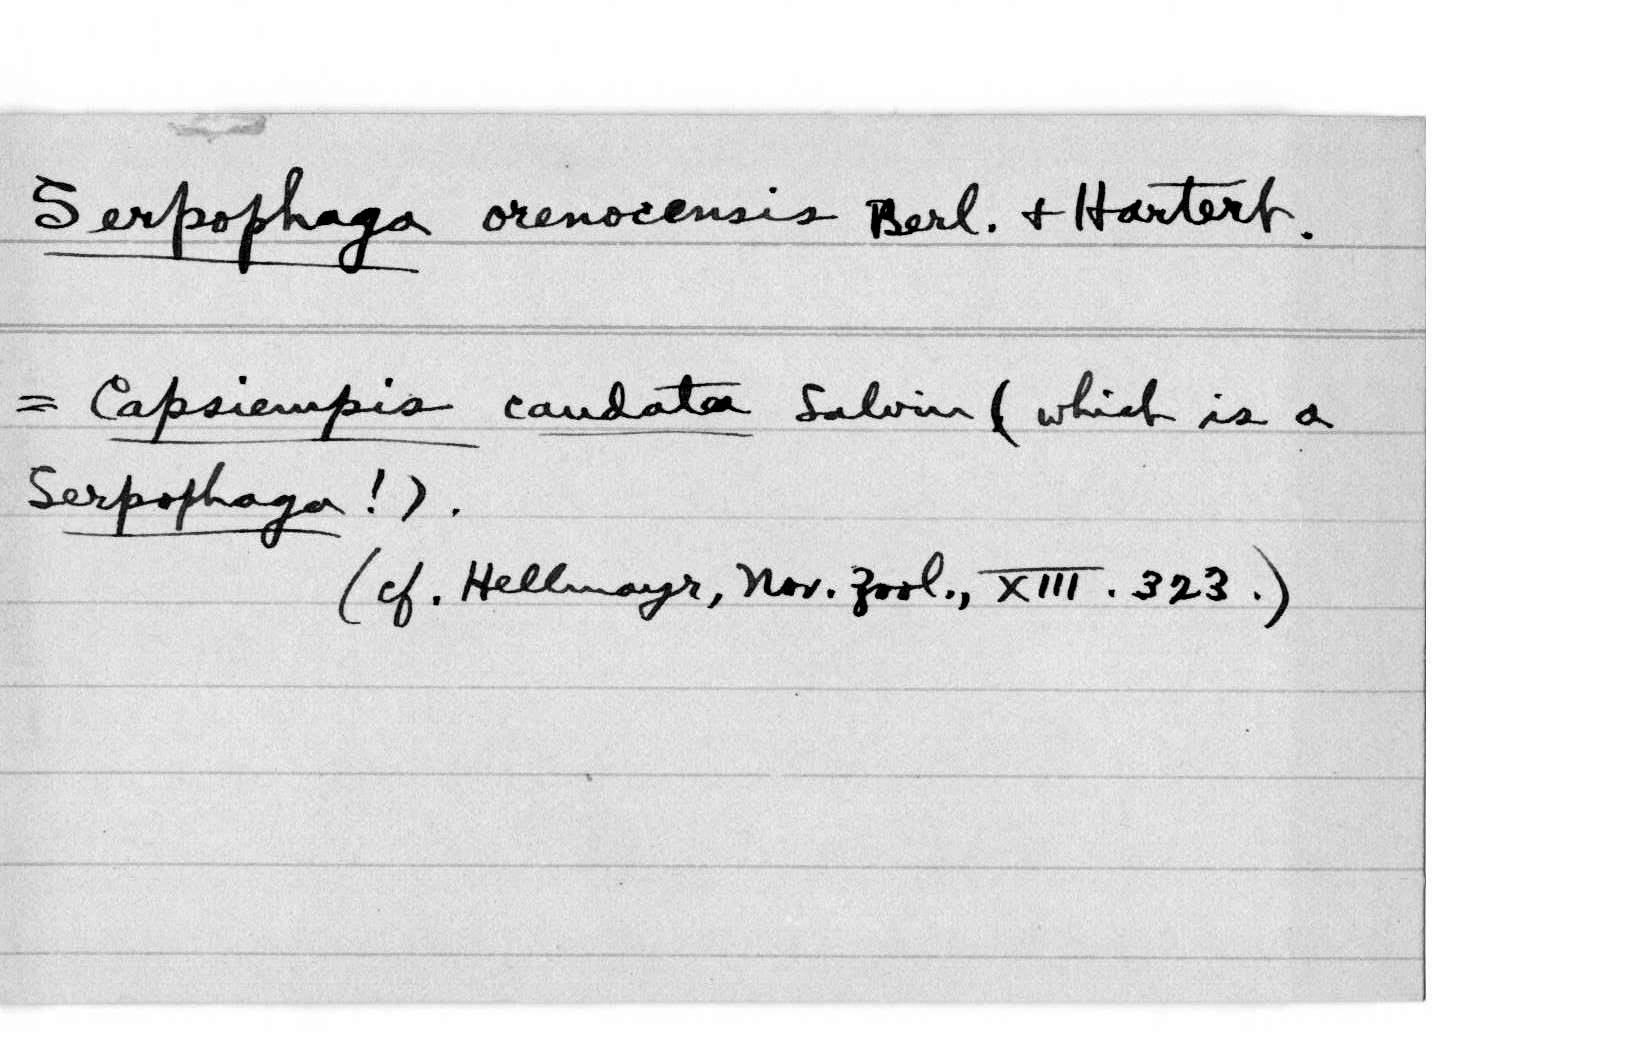 Serpophaga orenocensis Berl. + Hartert.
= Capsiempis caudata Salvin (which is a
Serpophaga!).
(cf. Hellmayr, Nov. Zool., XIII. 323.)